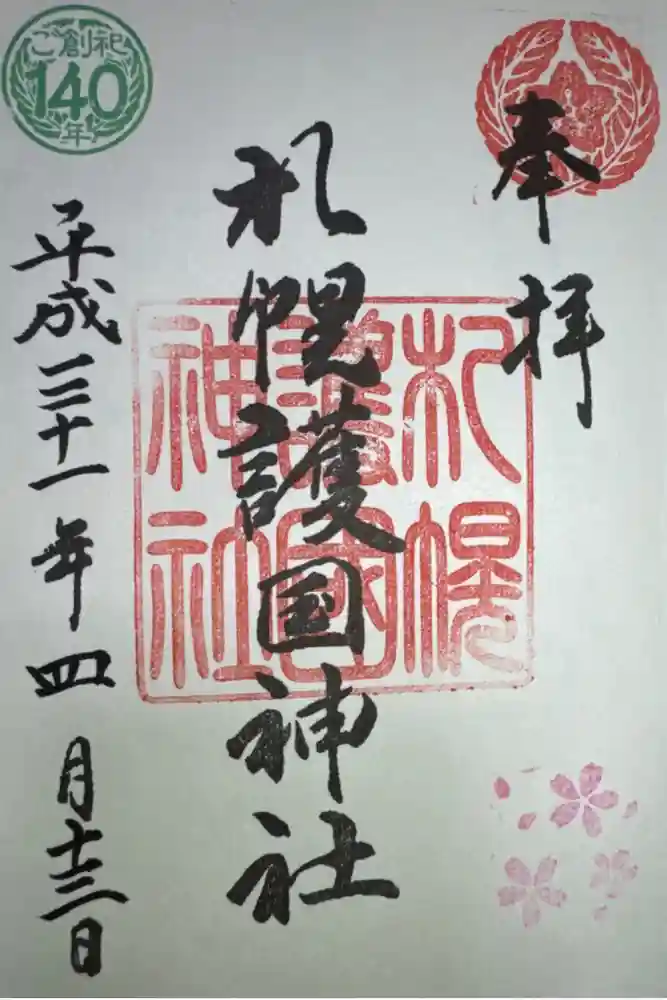 奉拝
札幌護国神社
札幌
護國
神社
平成三十一年四月十三日
ご創祀
140
年